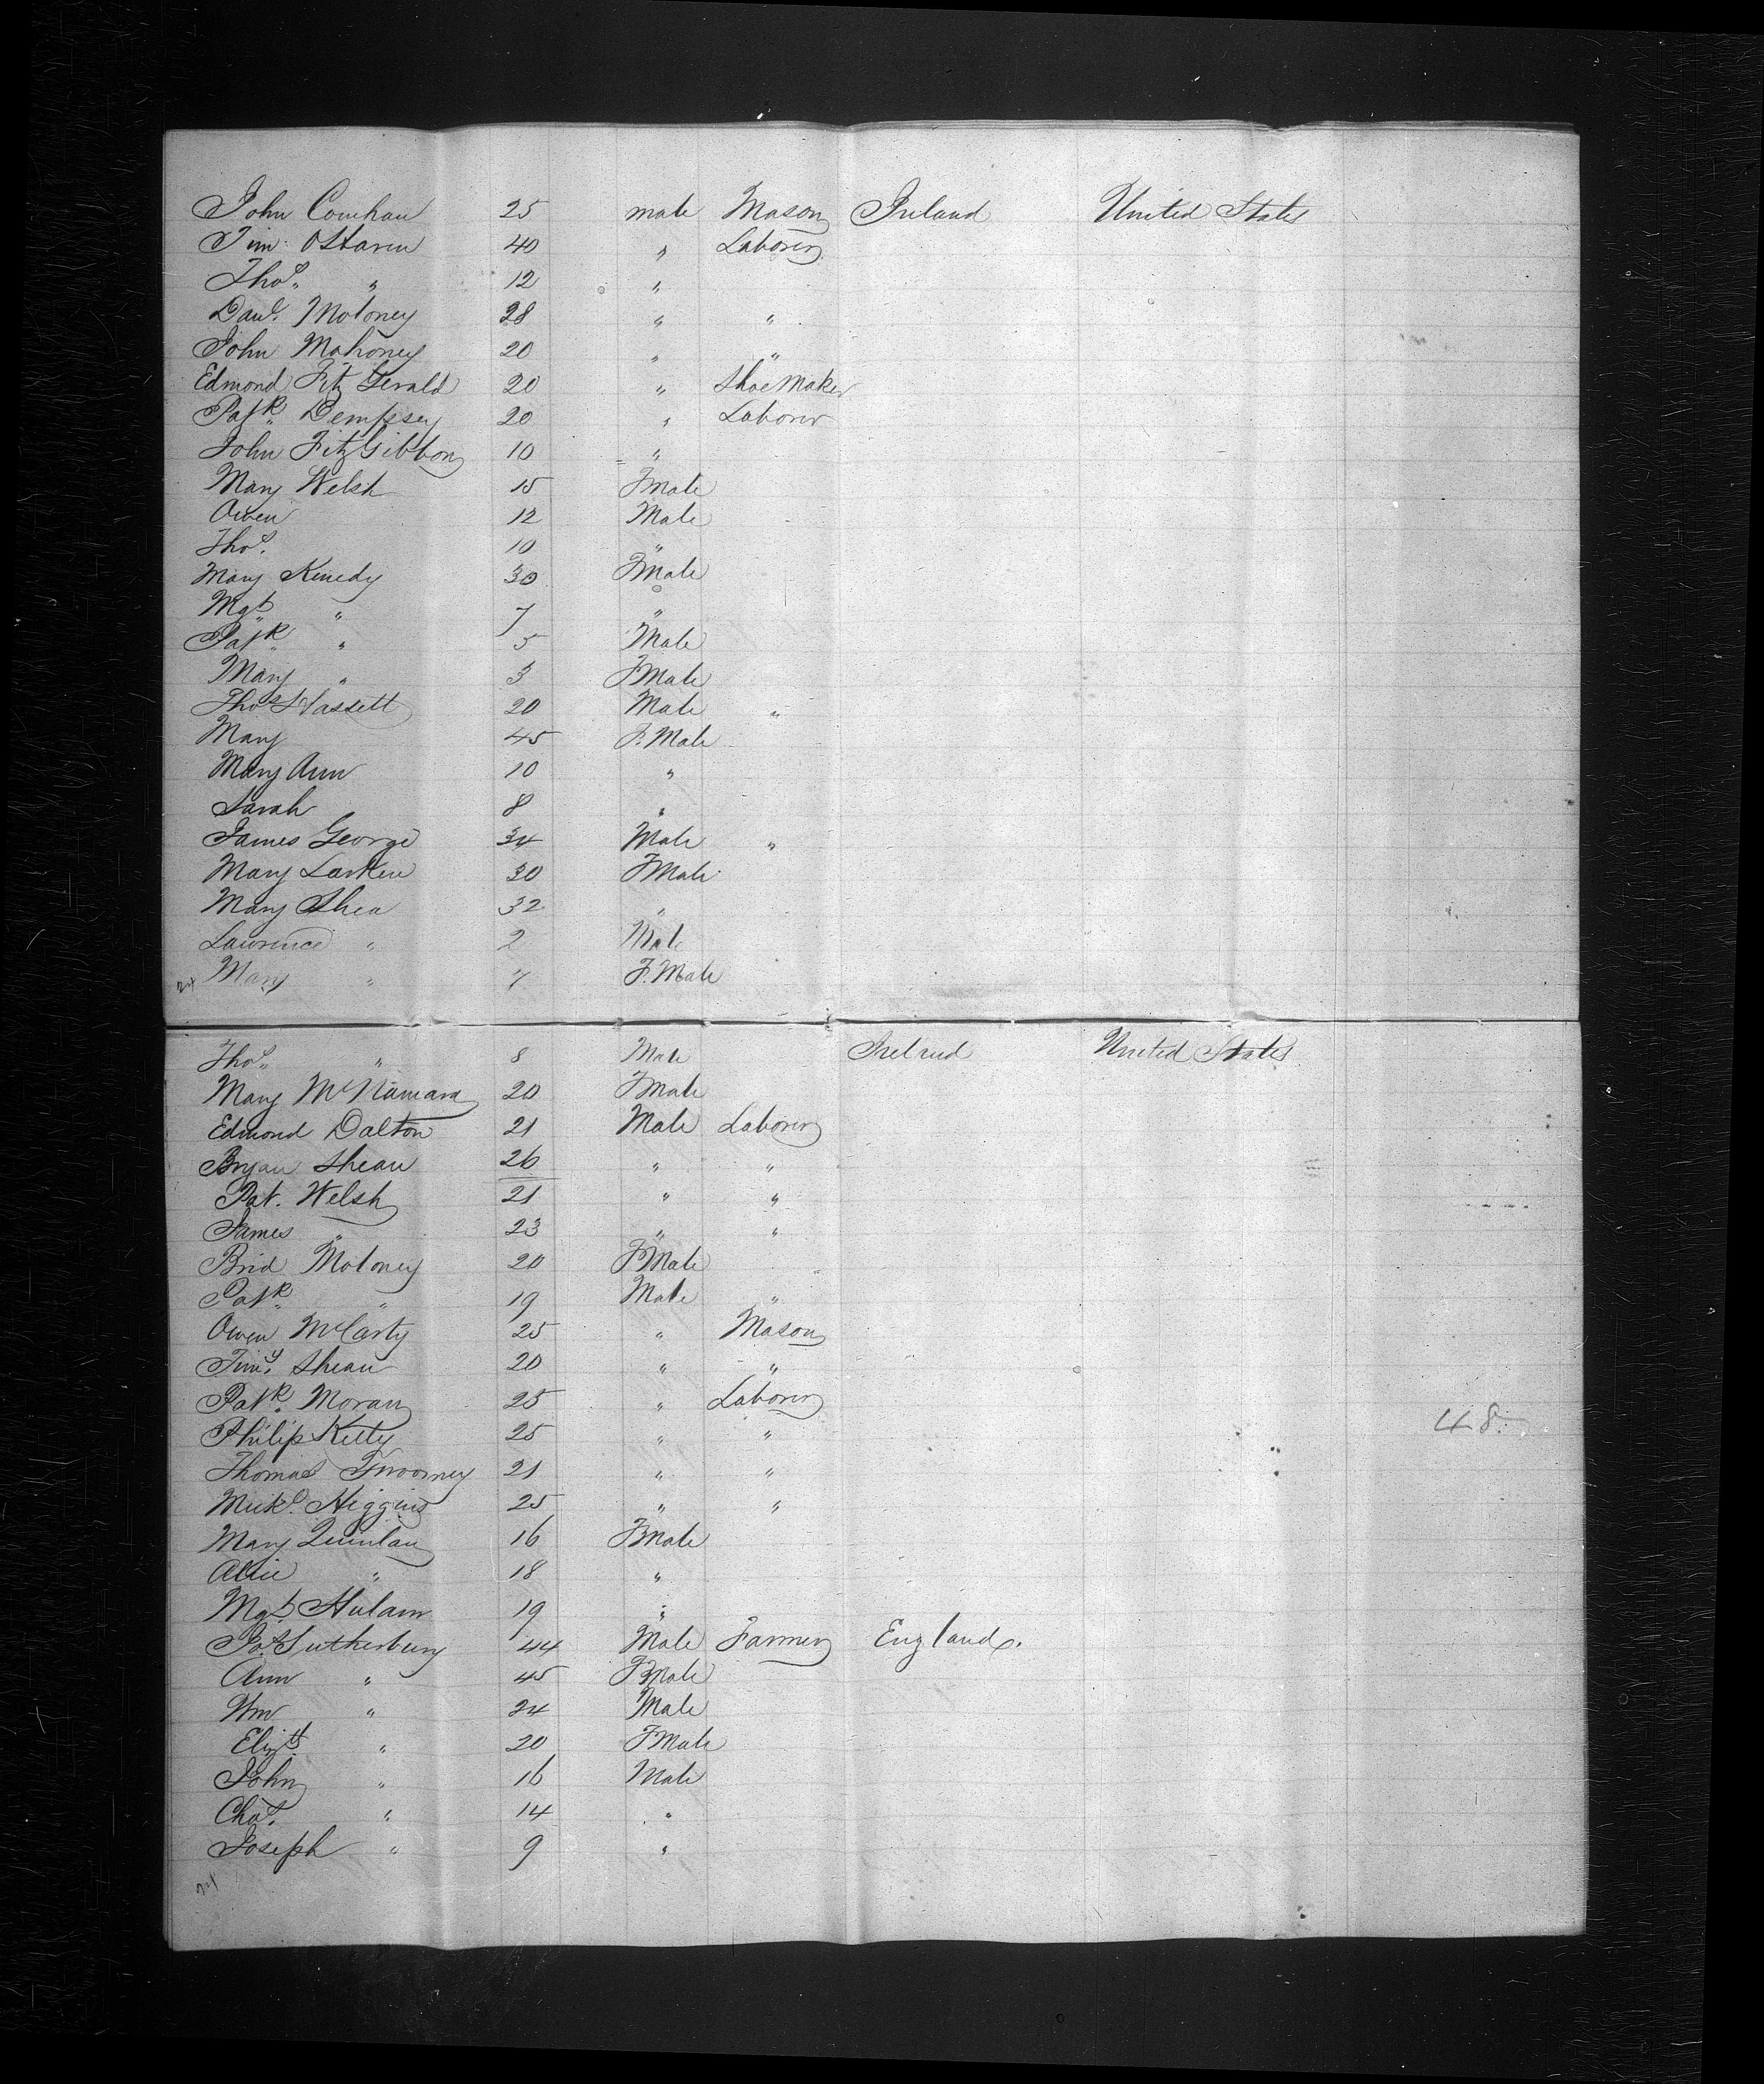 John Couhan 25 male Mason Ireland United States
Tim. OHaren 40 " Laborer
Thos. " 12 "
Danl. Moloney 28 " "
John Mahoney 20 " "
Edmond Fitz Gerald 20 " Shoe Maker
Patk. Dempsey 20 " Laborer
John FitzGibbon 10 "
Mary Welsh 15 FMale
Owen 12 Male
Thos. 10 "
Mary Kenedy 30 FMale
Mgt. " 7 "
Patk. " 5 Male
Mary " 3 FMale
Thos Hassett 20 Male "
Mary 45 F.Male
Mary Ann 10 "
Sarah 8 "
James George 34 Male "
Mary Larken 30 FMale
Mary Shea 32 "
Lawrence " 2 Male
24 Mary " 7 F.Male
Thos. " 8 Male Ireland United States
Mary McNamara 20 FMale
Edmond Dalton 21 Male Laborer
Bryan Shean 26 " "
Pat. Welsh 21 " "
James " 23 " "
Brid Moloney 20 FMale
Patk. " 19 Male "
Owen McCarty 25 " Mason
Timy. Shean 20 " "
Patk. Moran 25 " Laborer
Philip Kelly 25 " "
48.
Thomas Twoomey 21 " "
Mickl. Higgins 25 " "
Mary Quinlan 16 FMale
Alice " 18 "
Mgt. 19 "
Jas. Sutherbury 44 Male Farmer England.
Ann " 45 FMale
Wm " 24 Male
Elizth. " 20 FMale
John " 16 Male
Chas. " 14 "
Joseph " 9 "
24